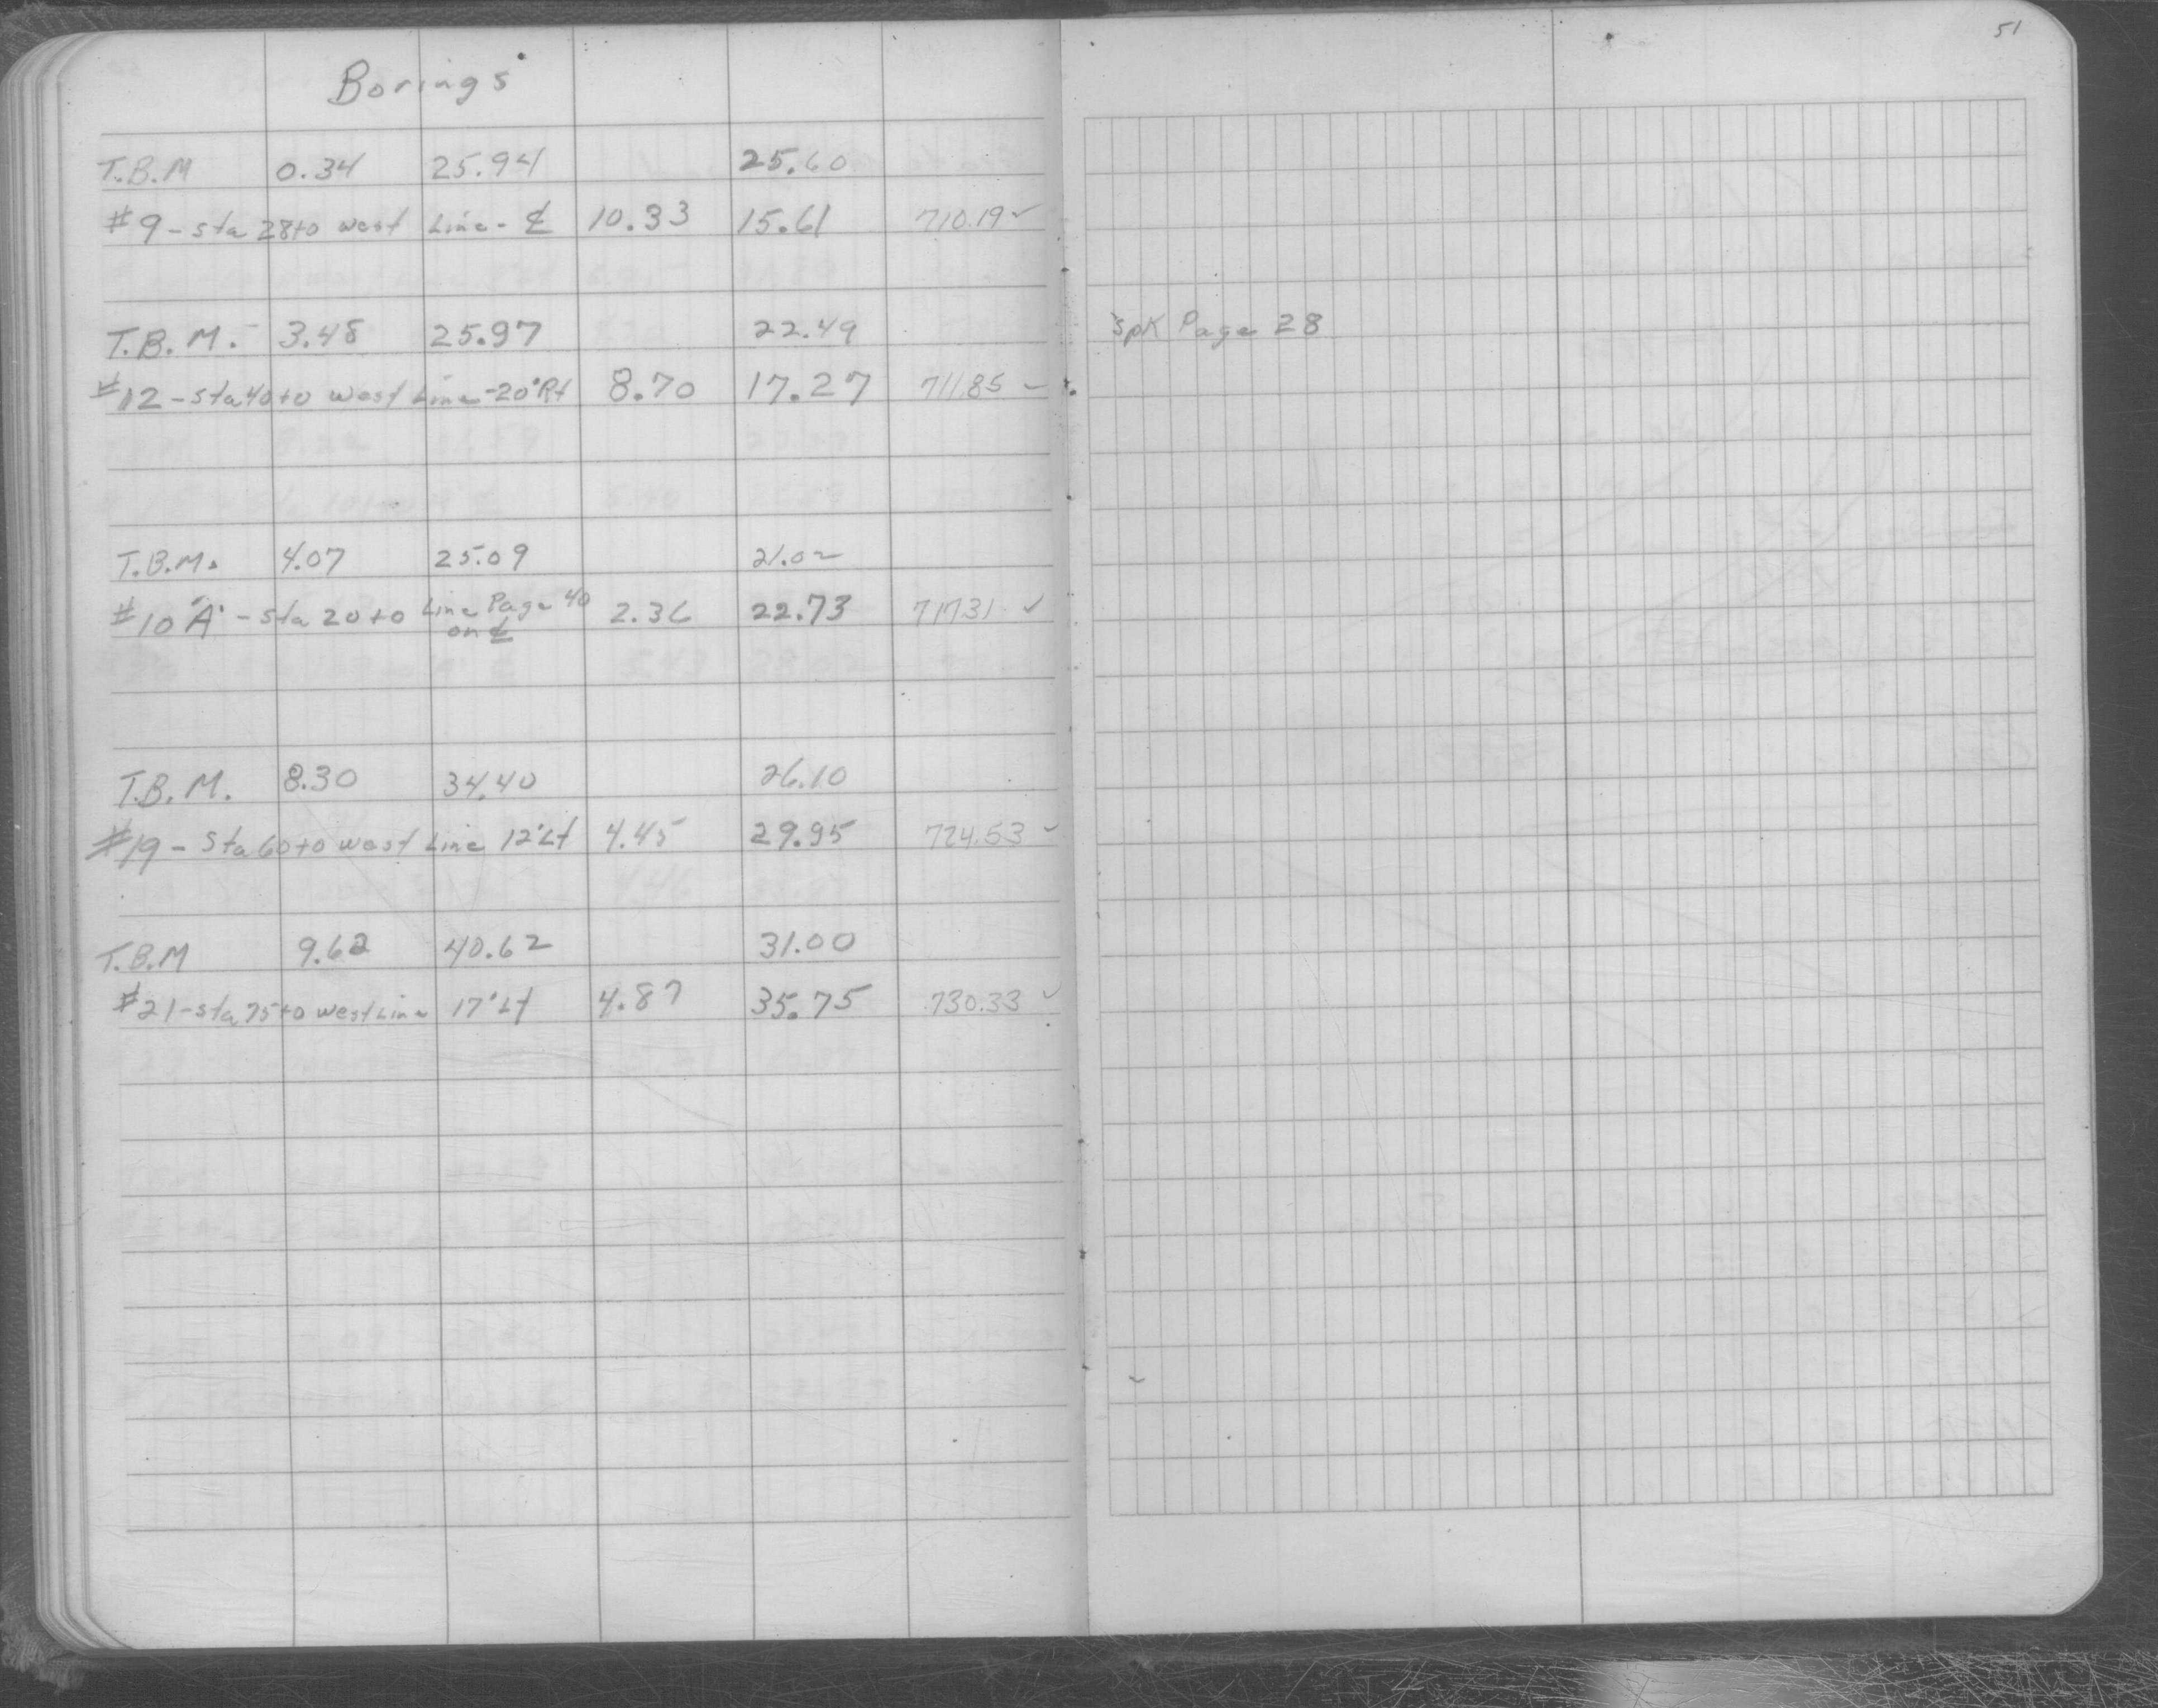 51
Borings
T.B.M 0.34 25.94 25.60
#9 - Sta 28+0 West Line - ℄ 10.33 15.61 710.19 ✓
T.B.M. 3.48 25.97 22.49 Spk Page 28
#12 - Sta 40+0 West Line - 20' Rt 8.70 17.27 711.85 ✓
T.B.M. 4.07 25.09 21.02
#10 "A" - Sta 20+0 Line Page 40 2.36 22.73 717.31 ✓
on ℄
T.B.M. 8.30 34.40 26.10
#19 - Sta 60+0 West Line 12' Lt 4.45 29.95 724.53 ✓
T.B.M 9.62 40.62 31.00
#21 - Sta 75+0 West Line 17' Lt 4.87 35.75 730.33 ✓